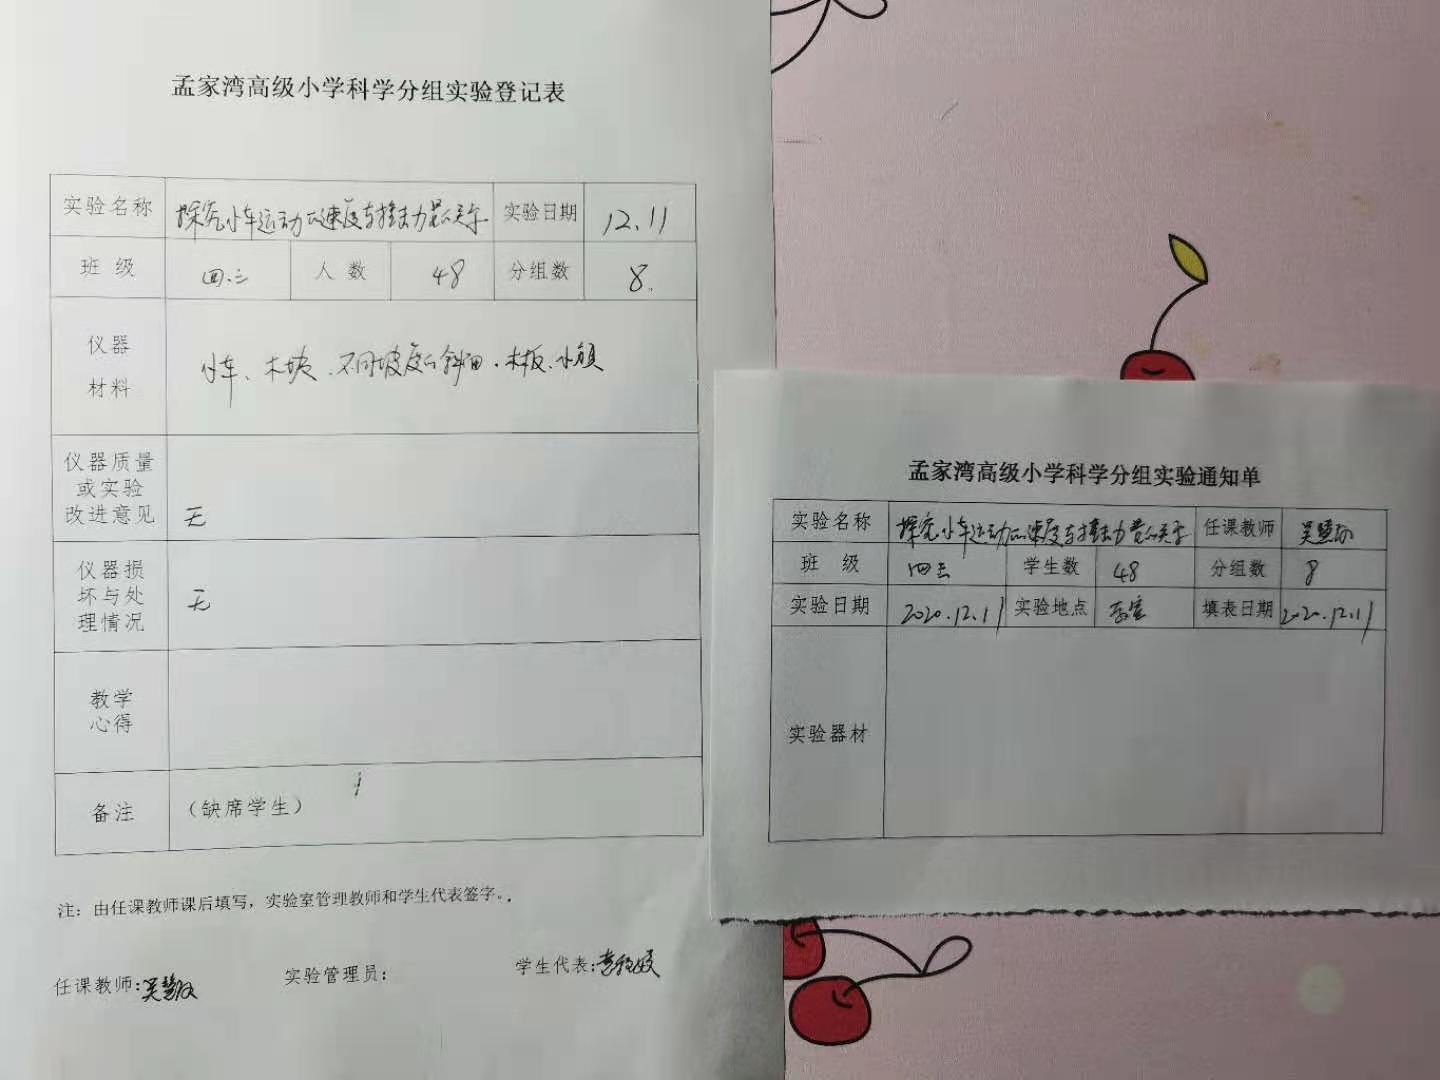 孟家湾高级小学科学分组实验登记表
实验名称 探究小车运动的速度与推动力量的关系 实验日期 12.11
班 级 四.三 人 数 48 分组数 8.
仪器
材料
小车、木块、不同坡度的斜面、木板、
仪器质量
或实验
改进意见
无
仪器损
坏与处
理情况
无
教学
心得
备注 （缺席学生）
注：由任课教师课后填写，实验室管理教师和学生代表签字。.
任课教师: 实验管理员: 学生代表:
孟家湾高级小学科学分组实验通知单
实验名称 探究小车运动的速度与推动力量的关系 任课教师
班 级 四三 学生数 48 分组数 8
实验日期 2020.12.11 实验地点 填表日期 2020.12.11
实验器材